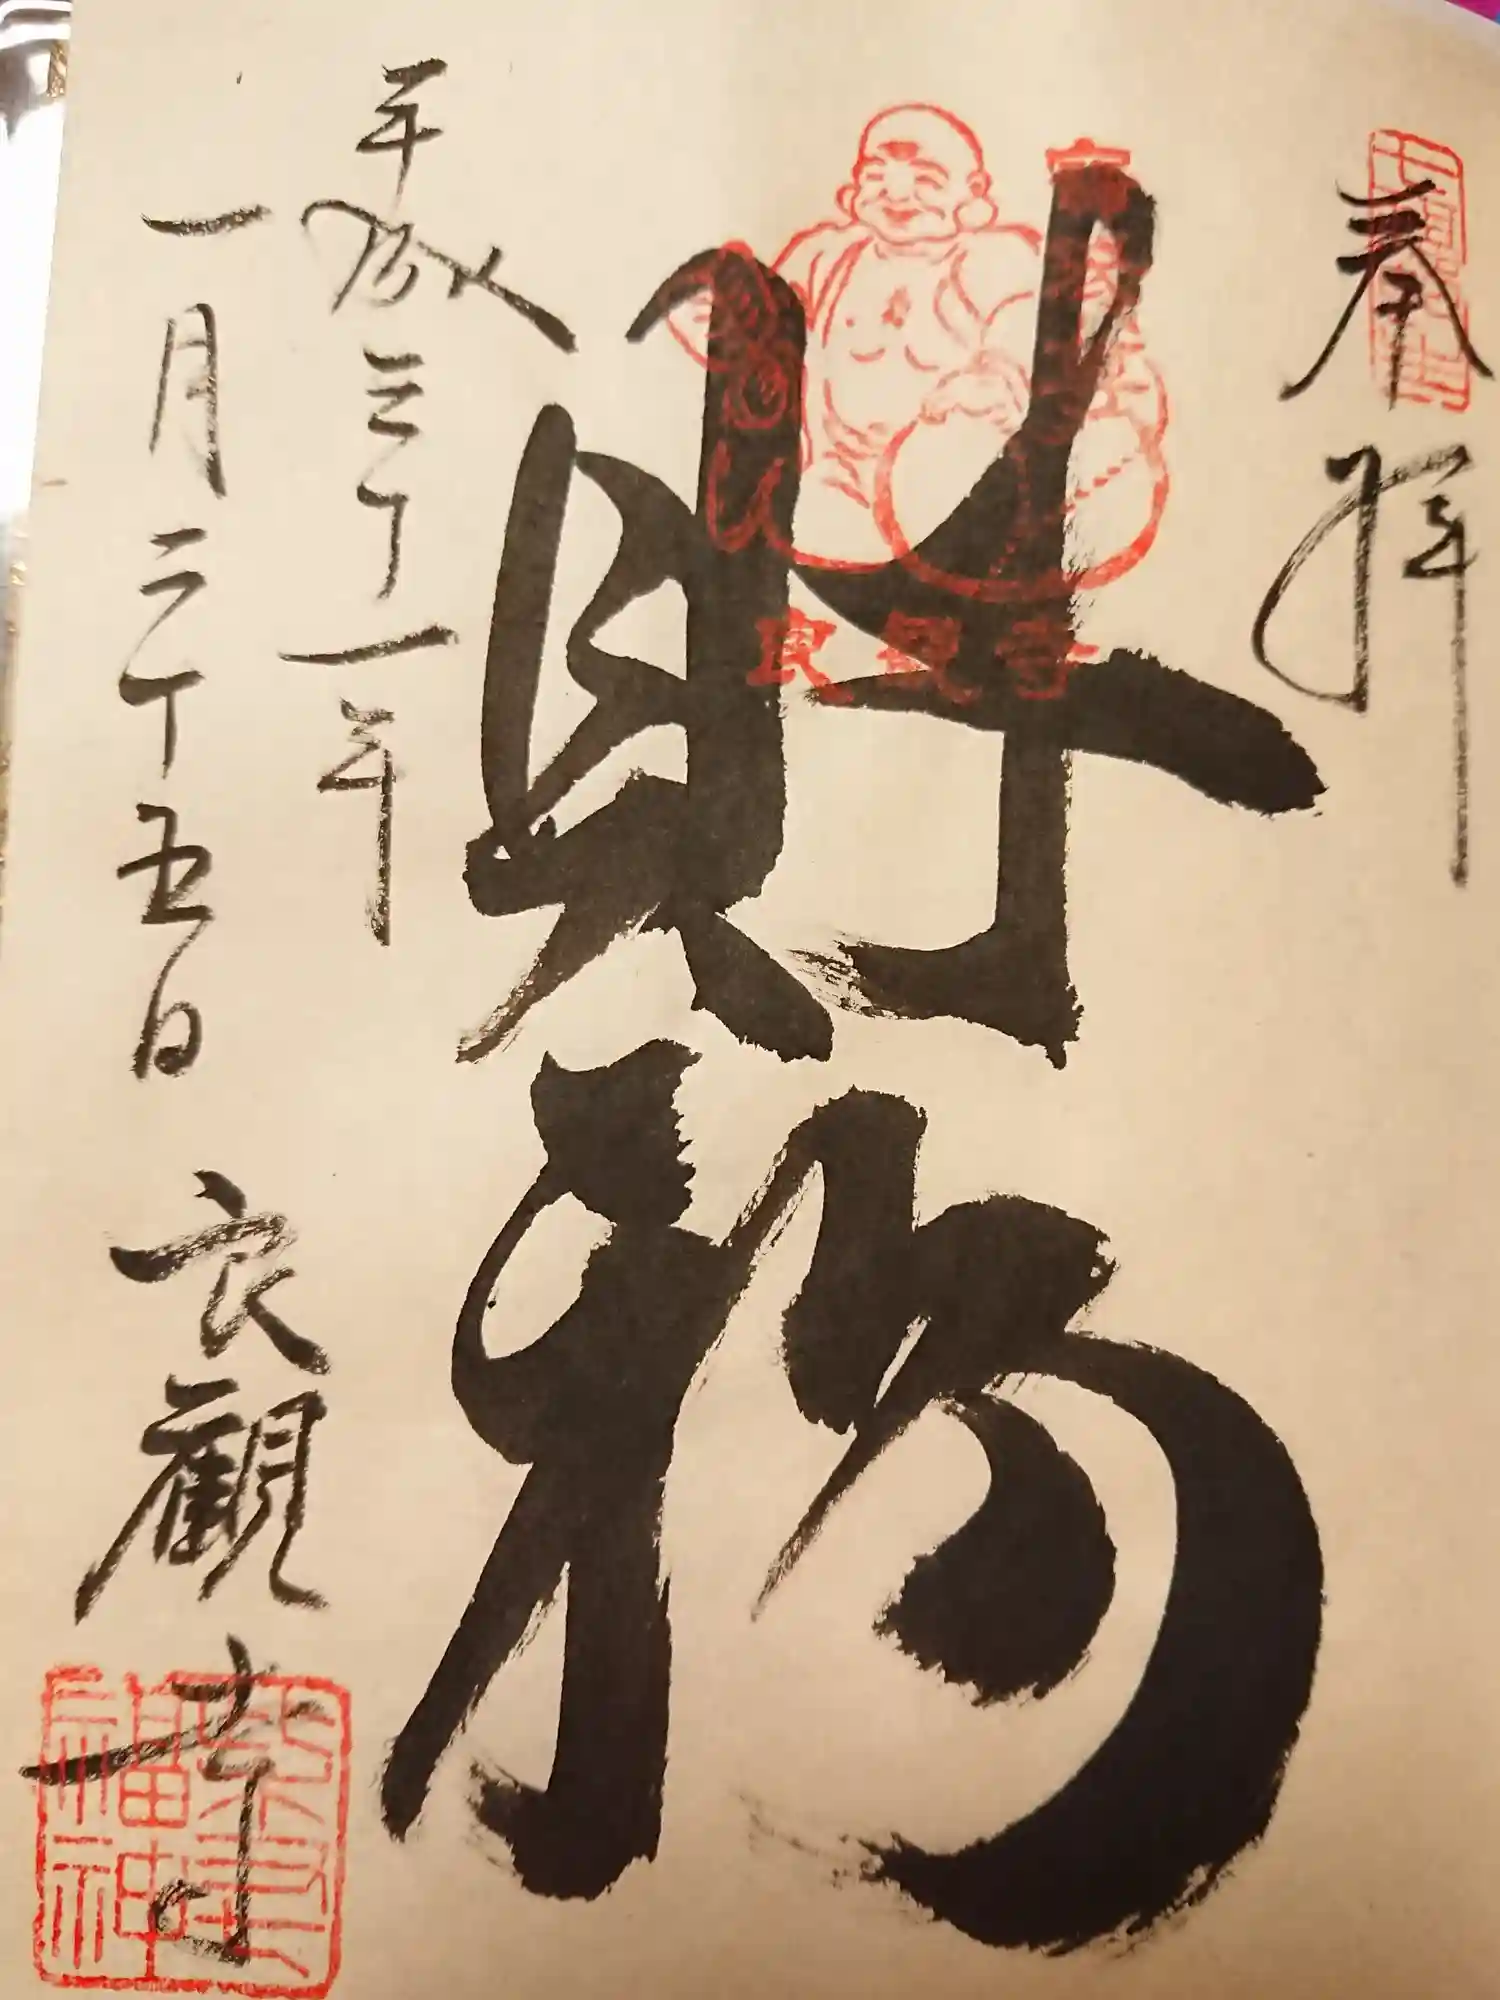 奉拝
財物
良観寺
平成三十一年
一月二十五日 良觀寺